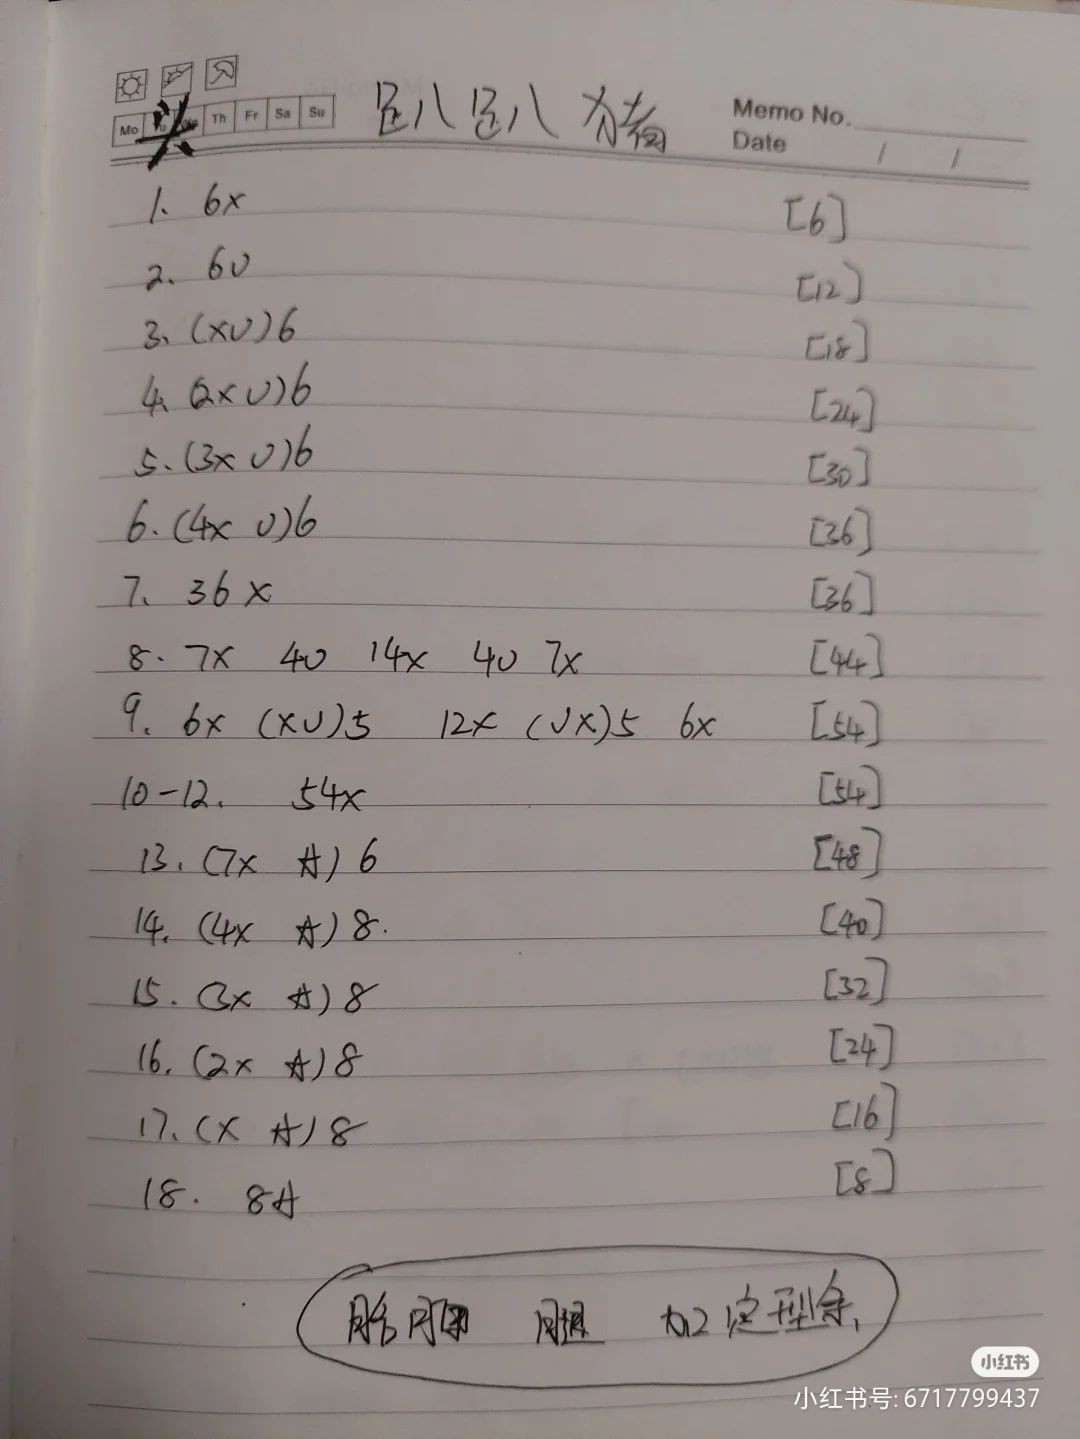 Mo Tu We Th Fr Sa Su
Memo No.
Date / /
头
1. 6x [6]
2. 6v [12]
3. (xv)6 [18]
4. (2x v)6 [24]
5. (3x v)6 [30]
6. (4x v)6 [36]
7. 36x [36]
8. 7x 4v 14x 4v 7x [44]
9. 6x (xv)5 12x (vx)5 6x [54]
10-12. 54x [54]
13. (7x A) 6 [48]
14. (4x A) 8. [40]
15. (3x A) 8 [32]
16. (2x A) 8 [24]
17. (x A) 8 [16]
18. 8A [8]
加定型条
小红书
小红书号: 6717799437